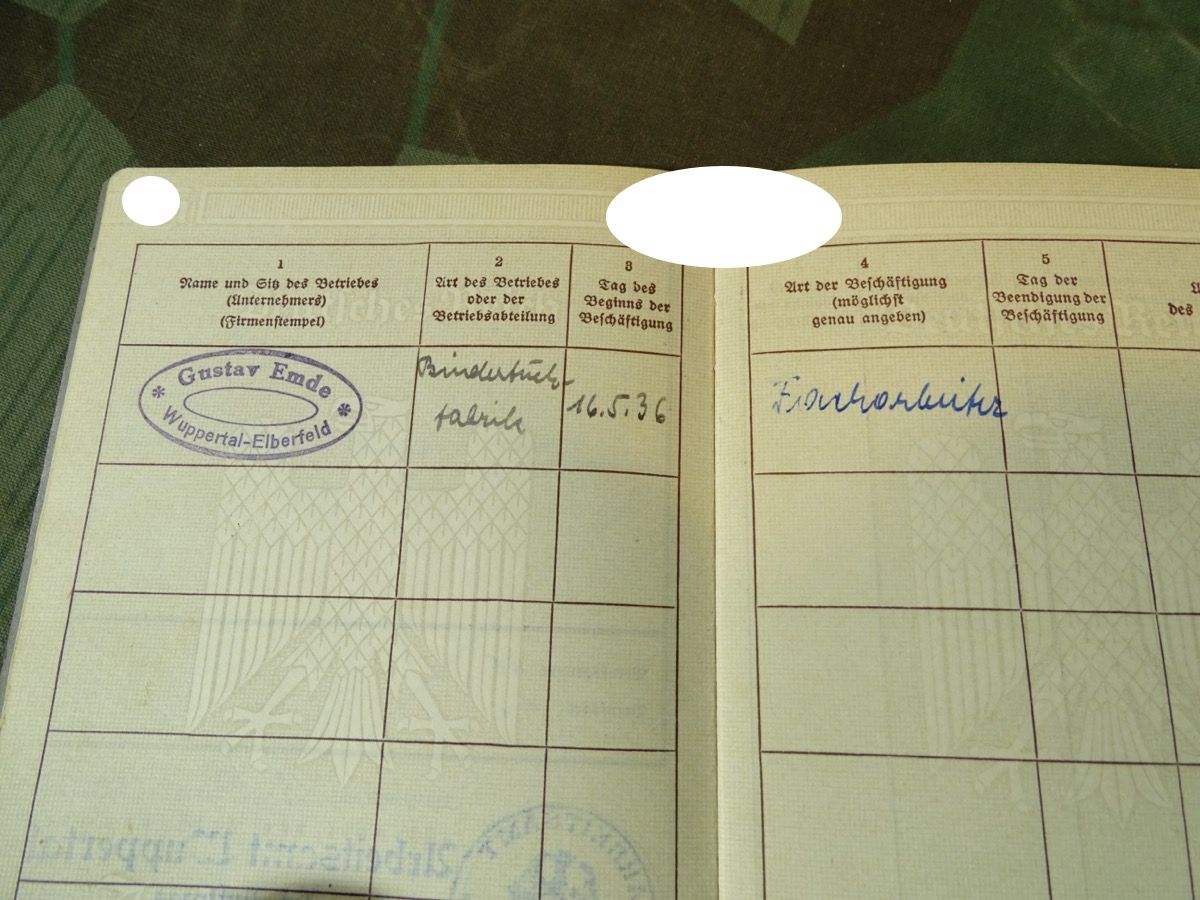 1
Name und Sitz des Betriebes
(Unternehmers)
(Firmenstempel)
2
Art des Betriebes
oder der
Betriebsabteilung
3
Tag des
Beginns der
Beschäftigung
4
Art der Beschäftigung
(möglichst
genau angeben)
5
Tag der
Beendigung der
Beschäftigung
des
Gustav Emde
Wuppertal-Elberfeld
fabrik
16.5.36
Arbeitsamt Wuppertal